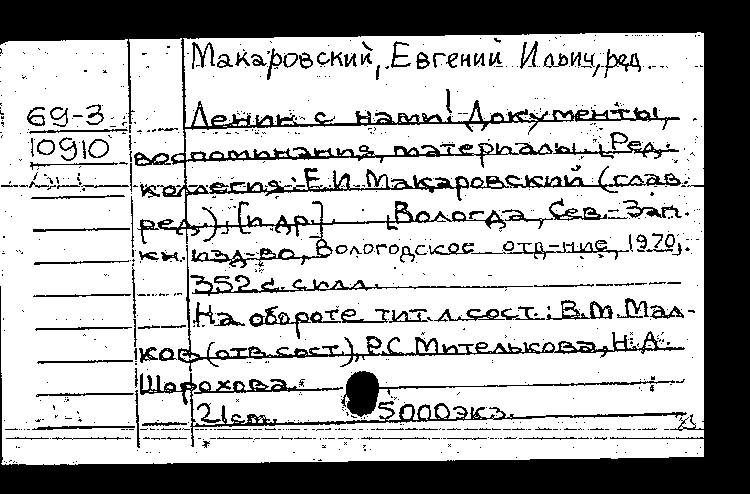 Макаровский, Евгений Ильич, ред
69-3 Ленин с нами! Документы,
10910 воспоминания, материалы. [Ред.
коллегия: Е.И. Макаровский (глав.
ред.), [и др.] [Вологда, Сев.-Зап.
кн. изд-во, Вологодское отд-ние, 1970,
352 с. с илл.
На обороте тит. л. сост.: В.М. Мал-
ков (отв. сост.), Р.С. Мителькова, Н.А.
Шорохова.
21 cm. 5000 экз.